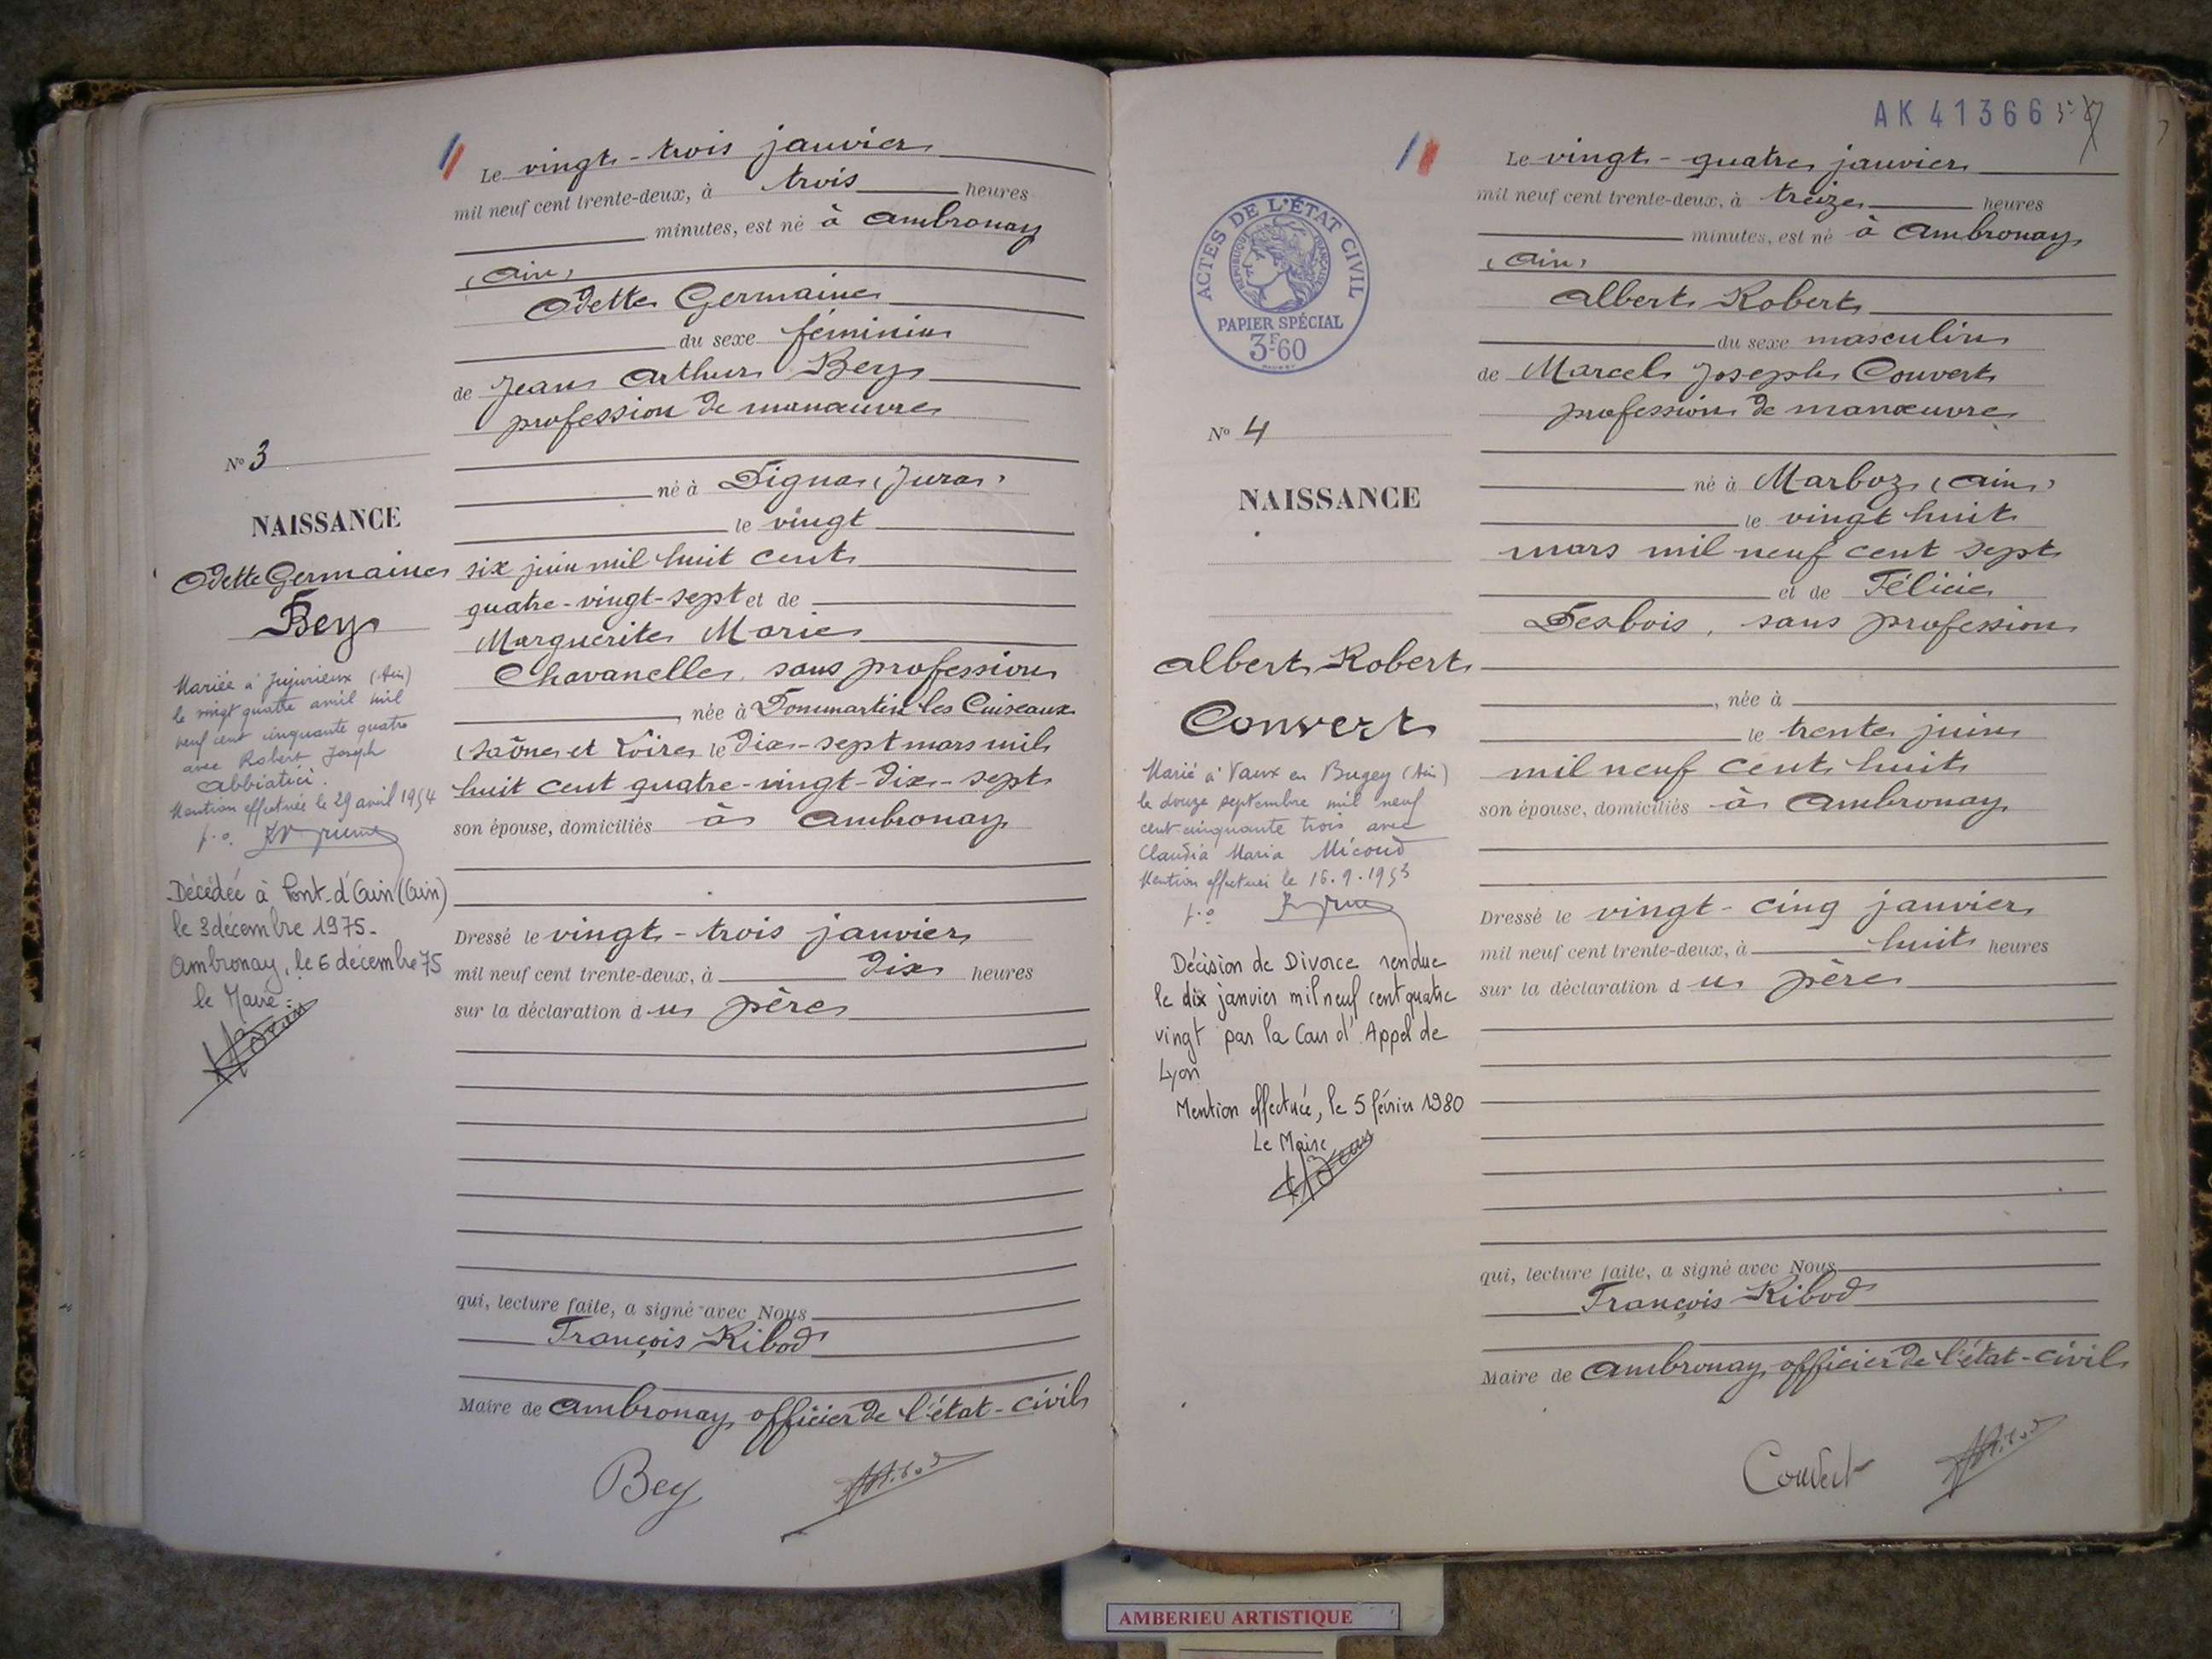 Le vingt-trois janvier
mil neuf cent trente-deux, à trois heures
minutes, est né à Ambronay
(Ain)
Odette Germaine
du sexe féminin
de Jean Arthur Bey
profession de manœuvre
né à Digna (Jura)
le vingt
six juin mil huit cent
quatre-vingt-sept et de
Marguerite Marie
Chavanelle, sans profession
née à Dommartin les Cuiseaux
(Saône et Loire) le dix-sept mars mil
huit cent quatre-vingt-dix-sept
son épouse, domiciliés à Ambronay
Dressé le vingt-trois janvier
mil neuf cent trente-deux, à dix heures
sur la déclaration du père
qui, lecture faite, a signé avec Nous
François Ribod
Maire de Ambronay, officier de l'état-civil
Bey
Ribod
N° 3
NAISSANCE
Odette Germaine
Bey
Mariée à Jujurieux (Ain)
le vingt quatre avril mil
neuf cent cinquante quatre
avec Robert Joseph
Abbiatici.
Mention effectuée le 29 avril 1954
p.o.
Décédée à Pont-d'Ain (Ain)
le 3 décembre 1975.
Ambronay, le 6 décembre 75
le Maire :
AK 41366
Le vingt-quatre janvier
mil neuf cent trente-deux, à treize heures
minutes, est né à Ambronay
(Ain)
Albert Robert
du sexe masculin
de Marcel Joseph Convert
profession de manœuvre
né à Marboz (Ain)
le vingt huit
mars mil neuf cent sept
et de Félicie
Desbois, sans profession
, née à
le trente juin
mil neuf cent huit
son épouse, domiciliés à Ambronay
Dressé le vingt-cinq janvier
mil neuf cent trente-deux, à huit heures
sur la déclaration du père
qui, lecture faite, a signé avec Nous
François Ribod
Maire de Ambronay, officier de l'état-civil
Convert
Ribod
ACTES DE L'ÉTAT CIVIL
RÉPUBLIQUE FRANÇAISE
PAPIER SPÉCIAL
3F60
N° 4
NAISSANCE
Albert Robert
Convert
Marié à Vaux en Bugey (Ain)
le douze septembre mil neuf
cent cinquante trois avec
Claudia Maria Micoud
Mention effectuée le 16.9.1953
p.o
Décision de Divorce rendue
le dix janvier mil neuf cent quatre
vingt par la Cour d'Appel de
Lyon
Mention effectuée, le 5 février 1980
Le Maire
AMBERIEU ARTISTIQUE